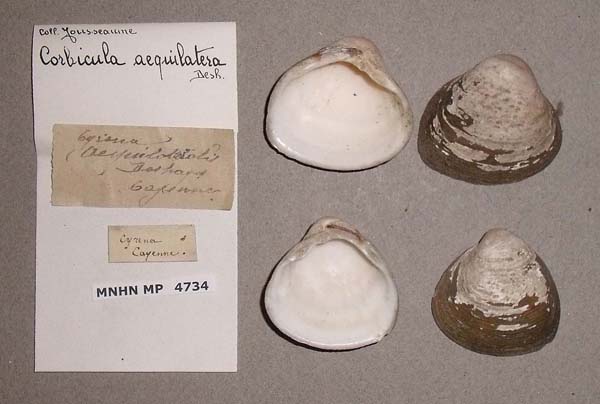 Coll. Jousseaume
Corbicula aequilatera
Desh.
Cyrena
Deshayes
Cayenne
Cyrena
Cayenne.
MNHN MP 4734